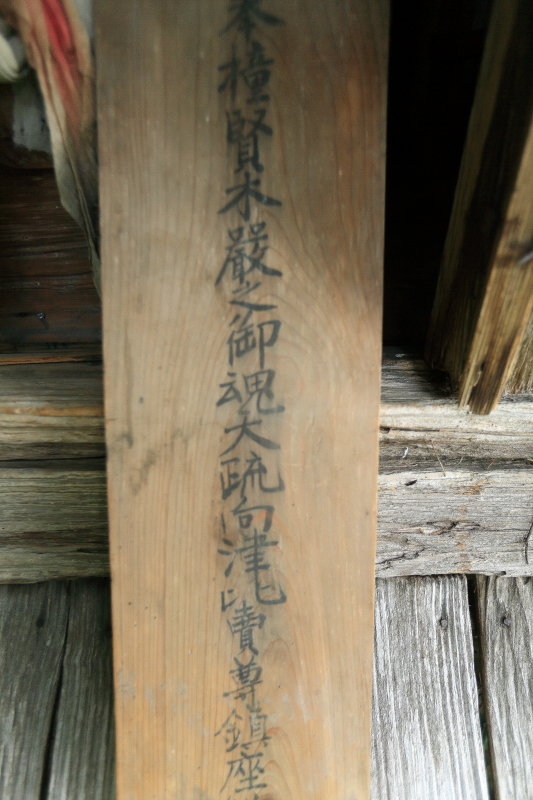 奉橦賢木嚴之御魂天疏向津比賣尊鎮座